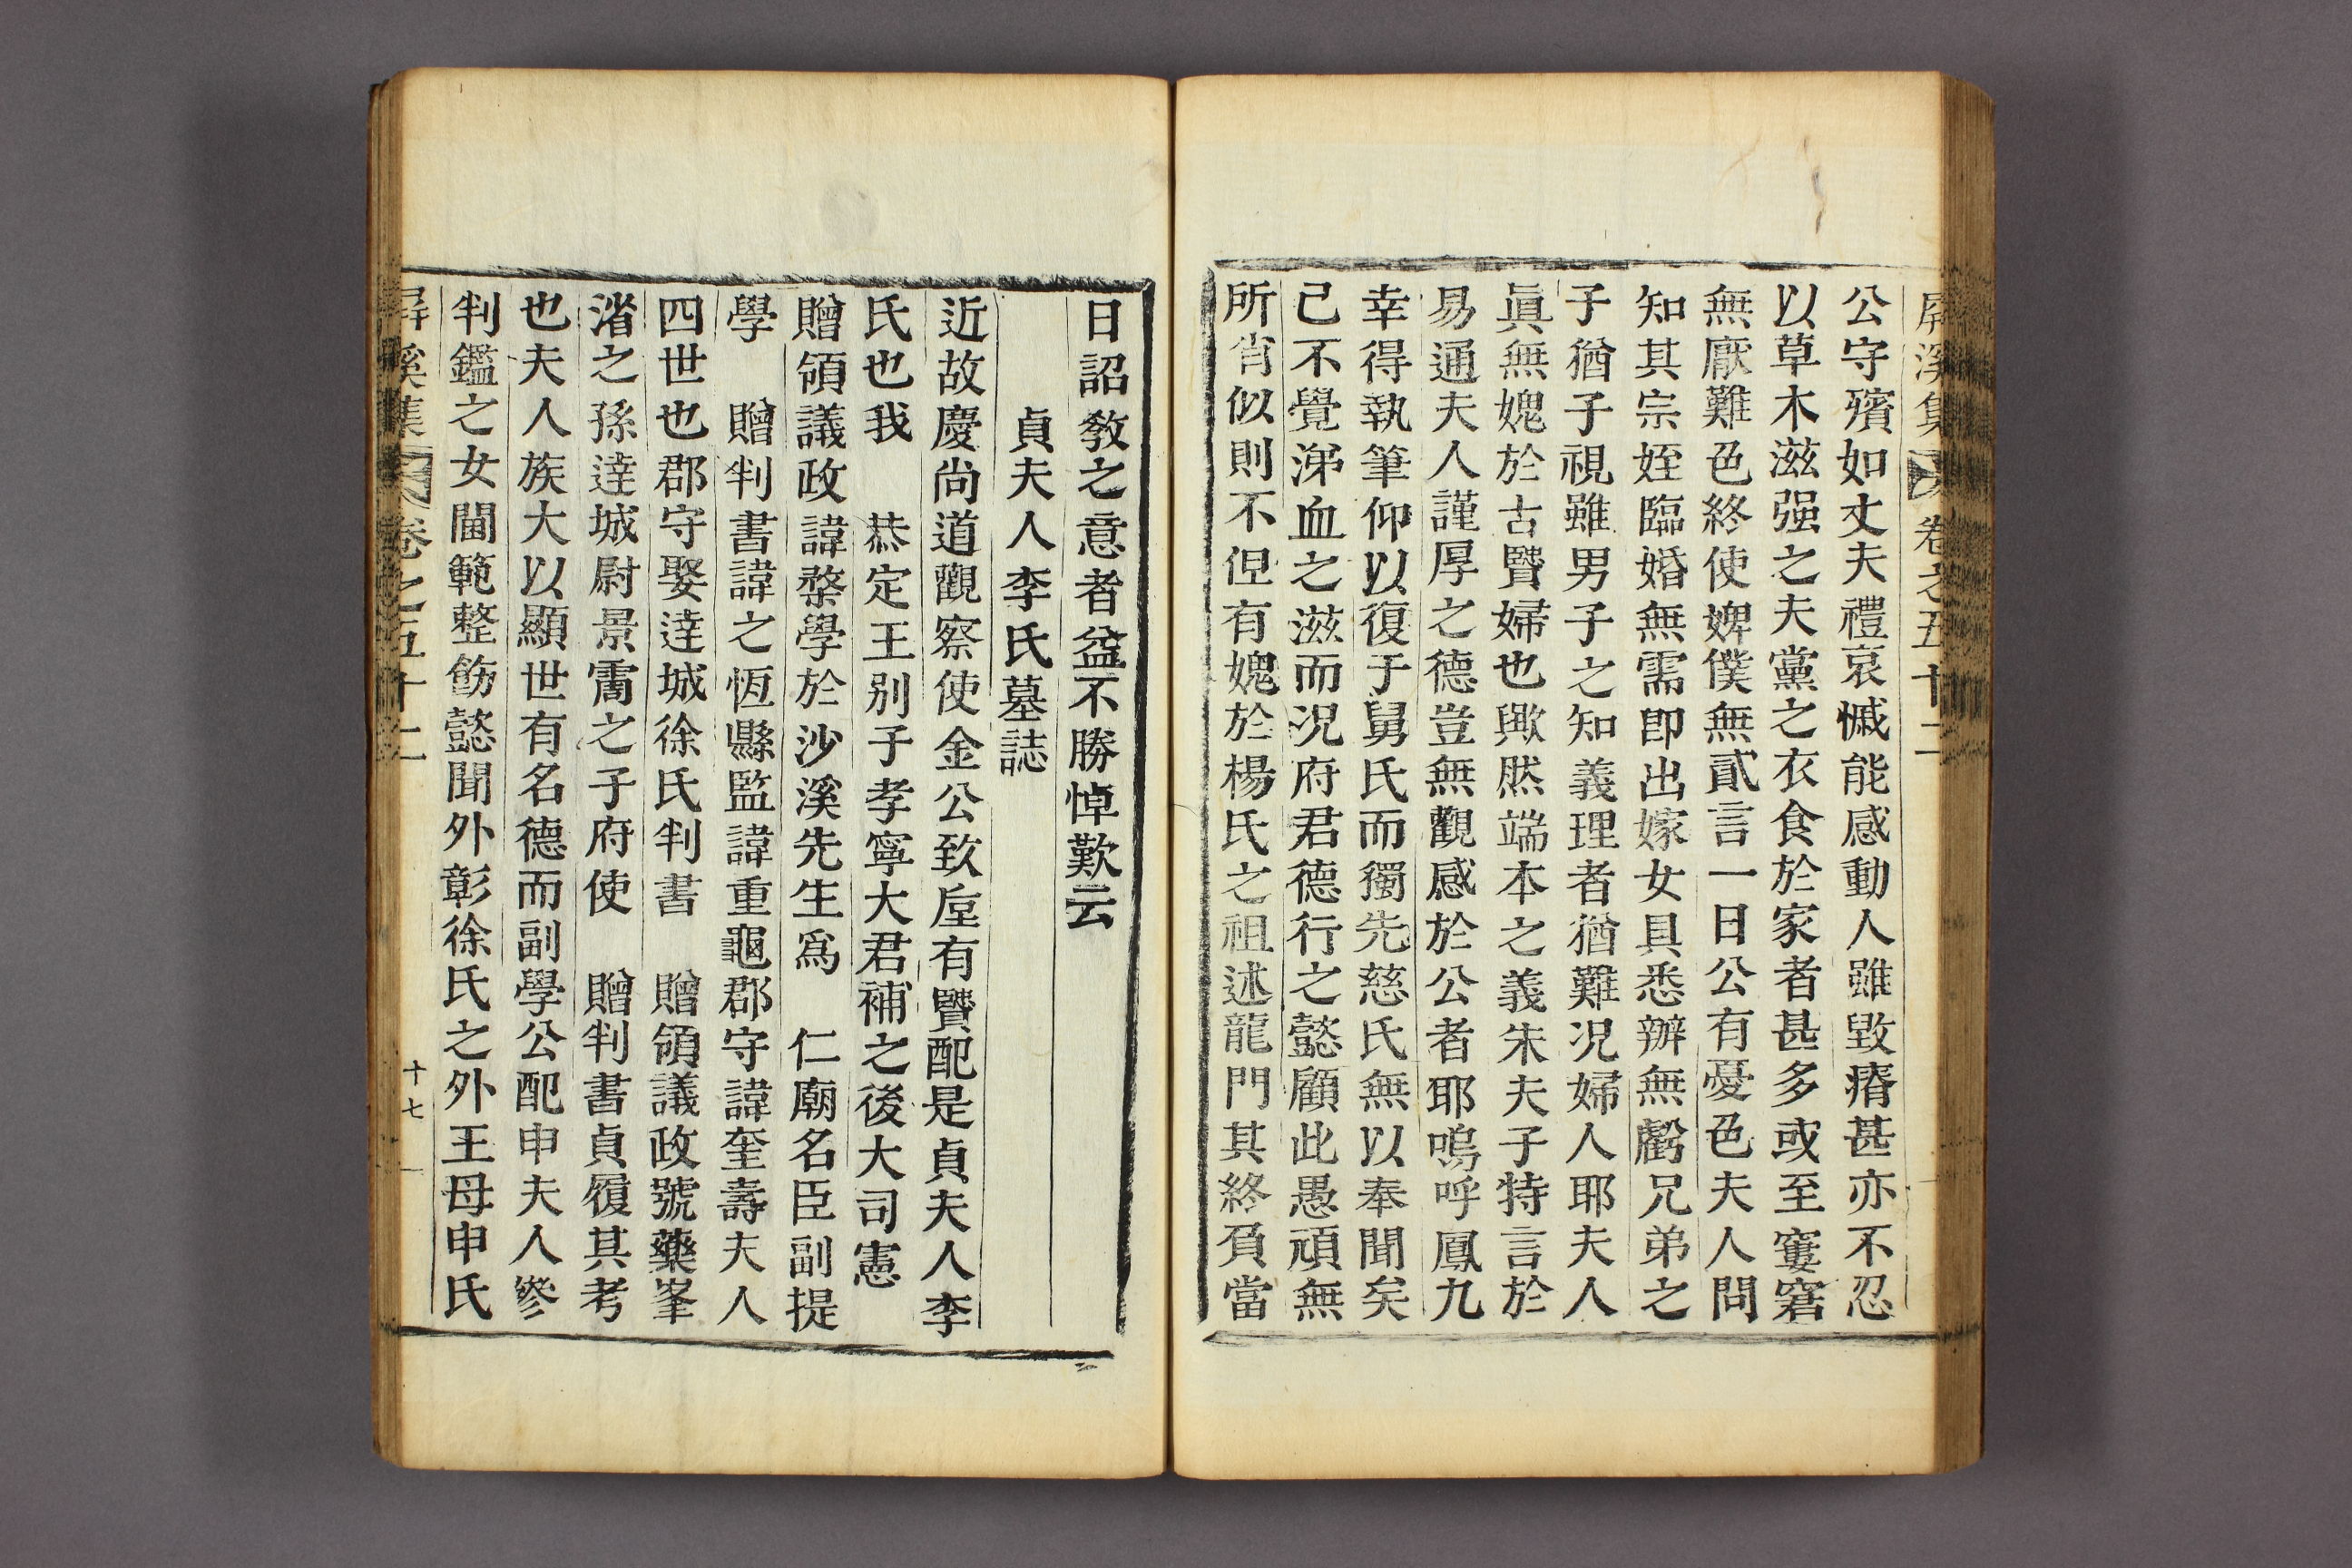 屛溪集 卷之五十二
公守殯如丈夫禮哀慽能感動人雖毀瘠甚亦不忍
以草木滋强之夫黨之衣食於家者甚多或至窶窘
無厭難色終使婢僕無貳言一日公有憂色夫人問
知其宗姪臨婚無需卽出嫁女具悉辦無虧兄弟之
子猶子視雖男子之知義理者猶難况婦人耶夫人
眞無媿於古賢婦也歟然端本之義朱夫子特言於
易通夫人謹厚之德豈無觀感於公者耶嗚呼鳳九
幸得執筆仰以復于舅氏而獨先慈氏無以奉聞矣
己不覺涕血之滋而况府君德行之懿顧此愚頑無
所肖似則不但有媿於楊氏之祖述龍門其終負當
日詔敎之意者益不勝悼歎云
貞夫人李氏墓誌
近故慶尙道觀察使金公致垕有賢配是貞夫人李
氏也我 恭定王別子孝寧大君補之後大司憲
贈領議政諱棨學於沙溪先生爲 仁廟名臣副提
學 贈判書諱之恆縣監諱重龜郡守諱奎壽夫人
四世也郡守娶達城徐氏判書 贈領議政號藥峯
渻之孫達城尉景霌之子府使 贈判書貞履其考
也夫人族大以顯世有名德而副學公配申夫人參
判鑑之女閫範整飭懿聞外彰徐氏之外王母申氏
屛溪集 卷之五十二 十七